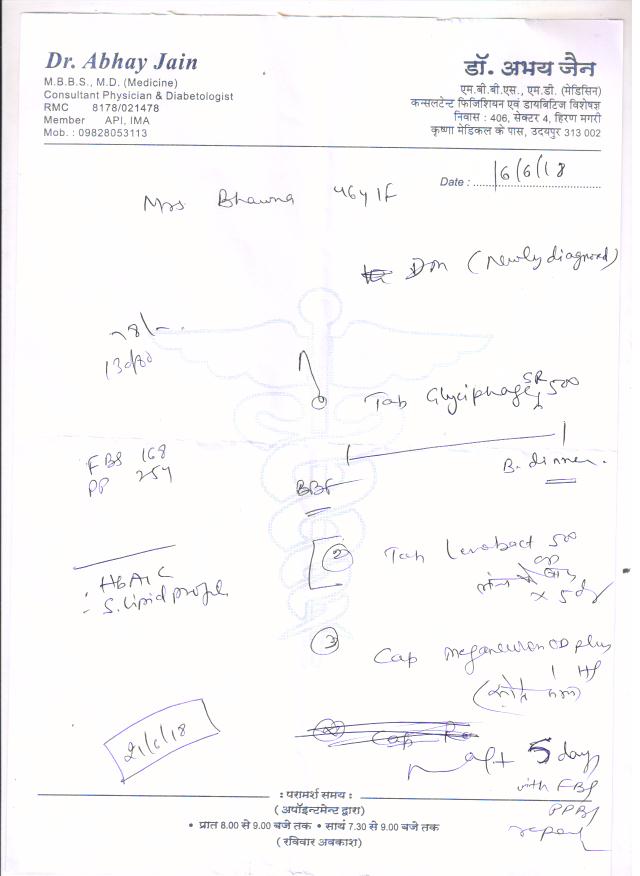 Dr. Abhay Jain
M.B.B.S., M.D. (Medicine)
Consultant Physician & Diabetologist
RMC 8178/021478
Member API, IMA
Mob. : 09828053113
डॉ. अभय जैन
एम.बी.बी.एस., एम.डी. (मेडिसिन)
कन्सलटेन्ट फिजिशियन एवं डायबिटिज विशेषज्ञ
निवास : 406, सेक्टर 4, हिरण मगरी
कृष्णा मेडिकल के पास, उदयपुर 313 002
Date : 16/6/18
Mrs Bhawna 46y/F
Dm (Newly diagnosed)
130/80
Tab Glyciphage SR 500
FBS 168
PP 257
BBF
B. dinner.
② Tab Levobact 500
x 5 dy
HbA1C
S. Lipid profile
③ Cap Meganeuron OD plus
1 HS
21/6/18
Cap
aft 5 days
with FBS
PPBS
repeat
: परामर्श समय :
(अपॉइन्टमेन्ट द्वारा)
• प्रात 8.00 से 9.00 बजे तक • सायं 7.30 से 9.00 बजे तक
(रविवार अवकाश)